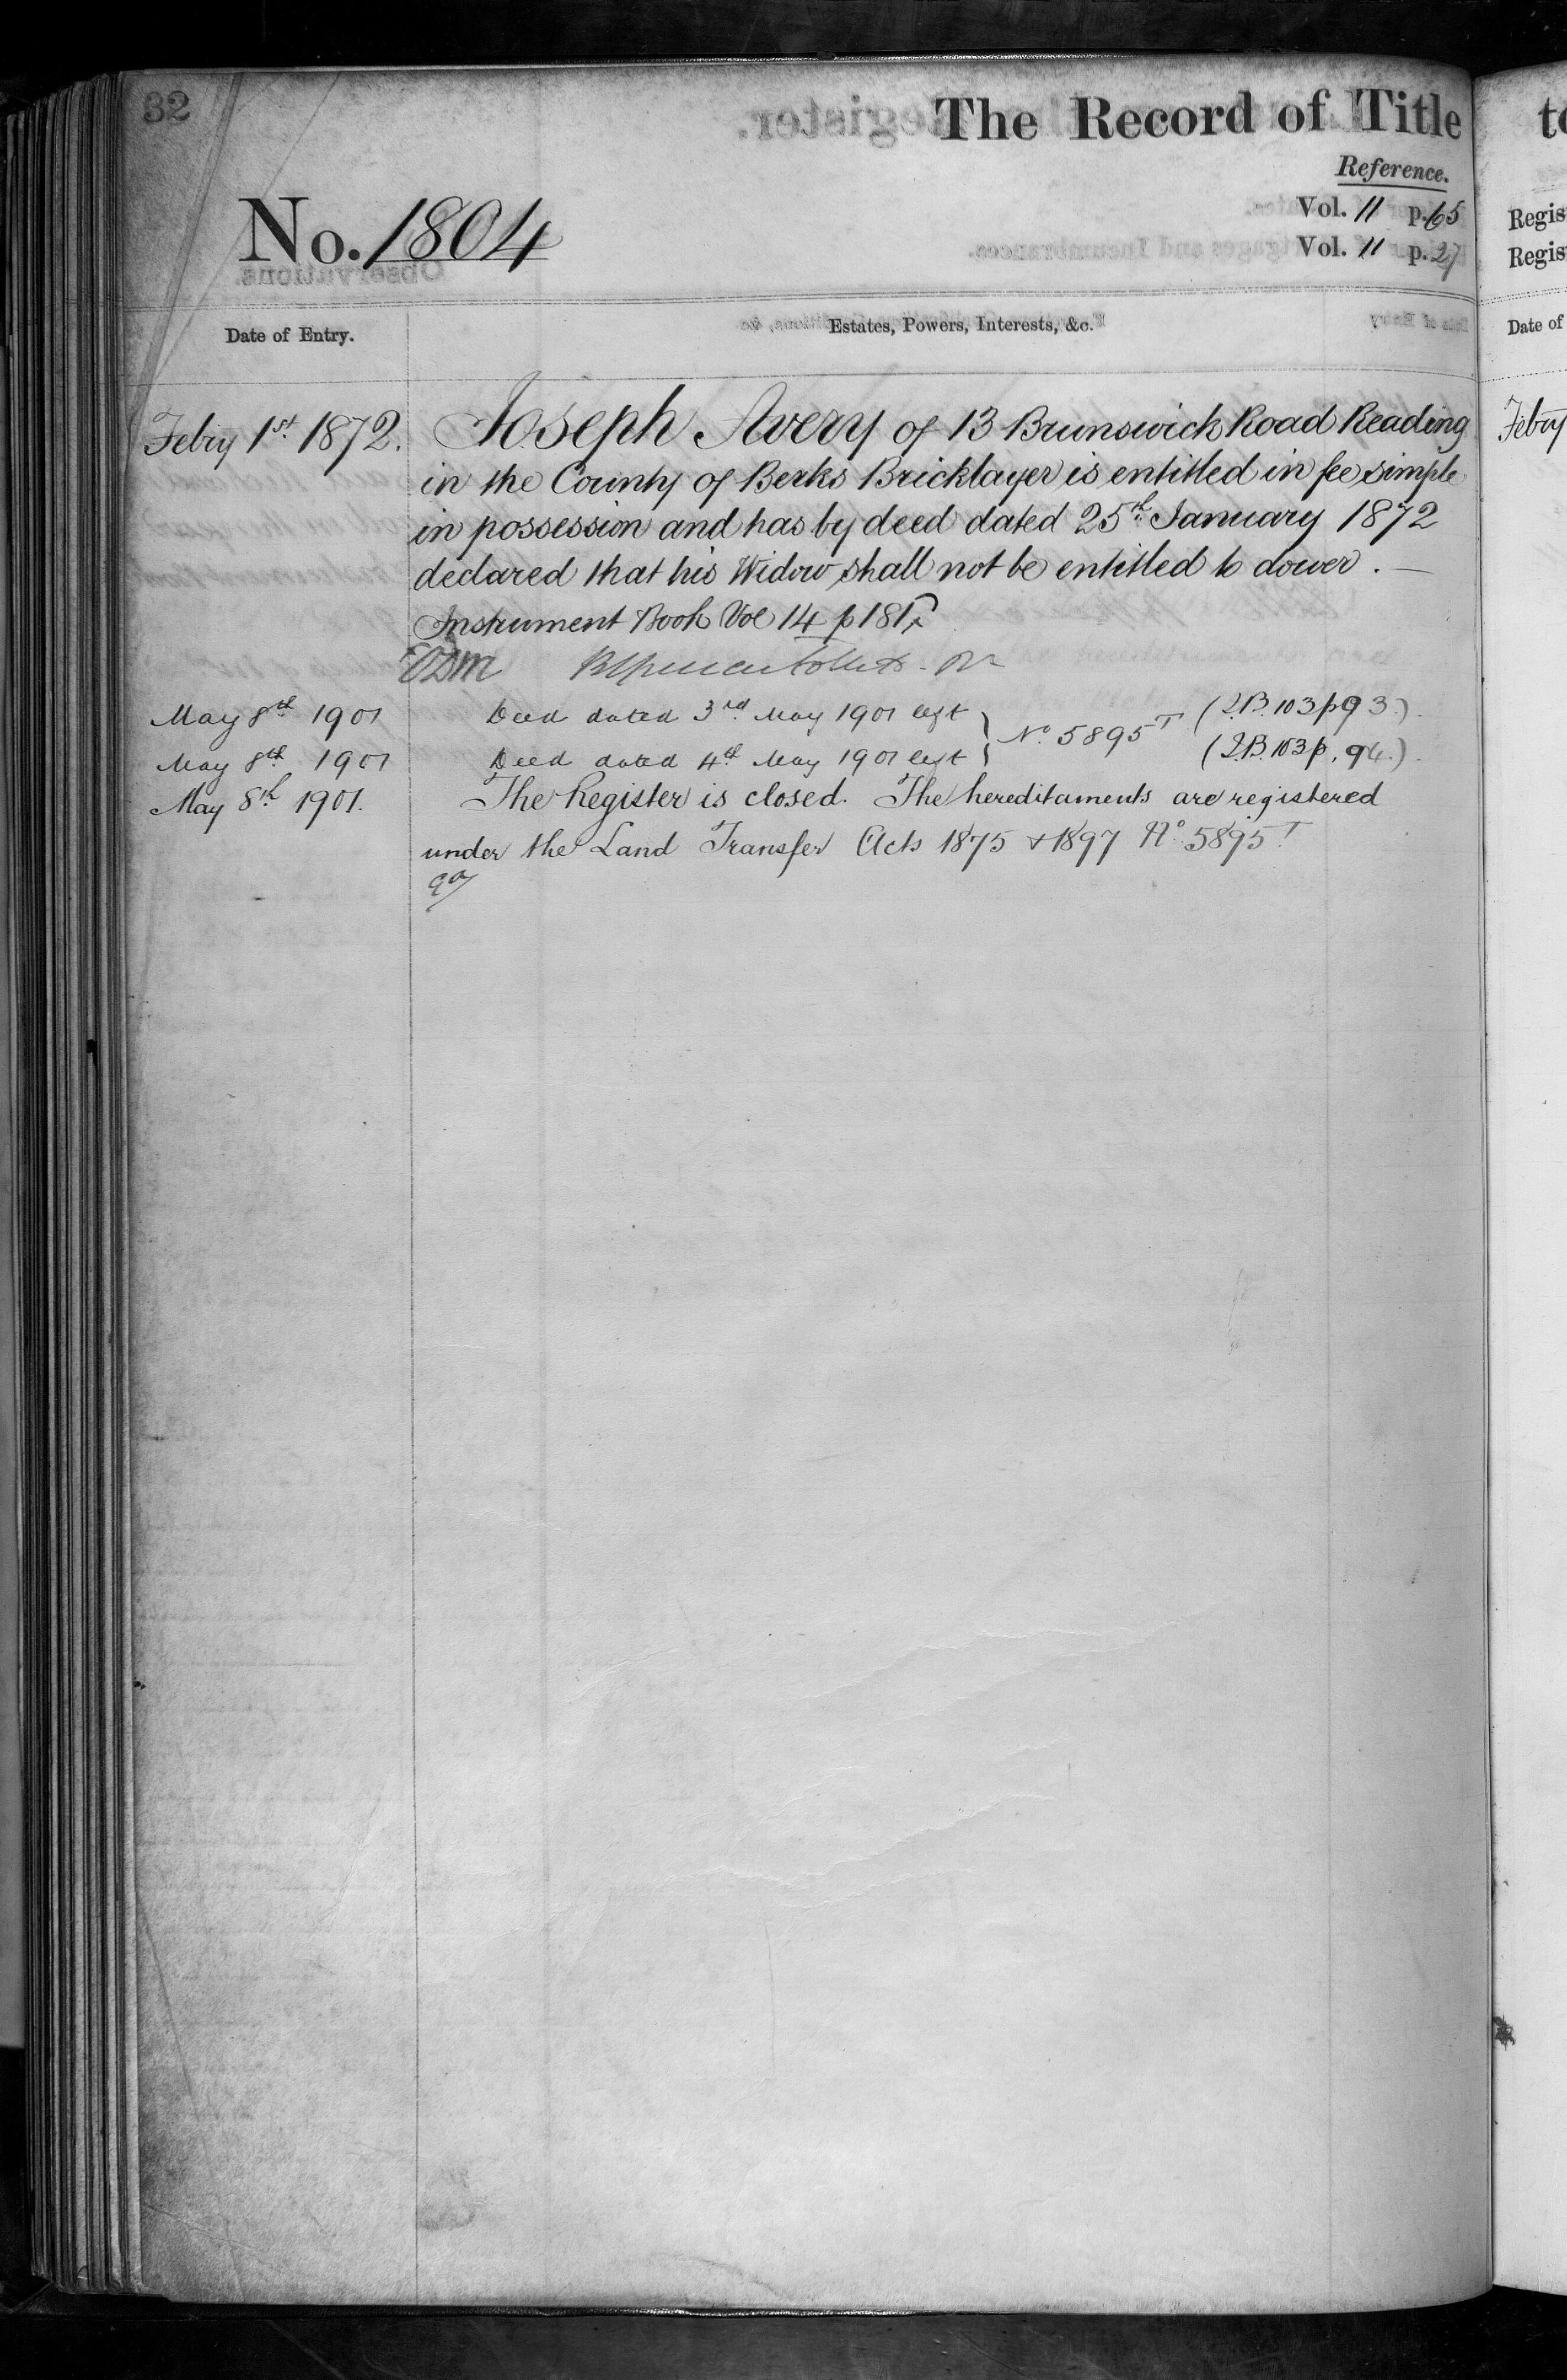 32
The Record of Title
Reference.
No. 1804
Vol. 11 p. 65
Vol. 11 p. 27
Date of Entry.
Estates, Powers, Interests, &c.
Febry 1st 1872. Joseph Avery of 13 Brunswick Road Reading
in the County of Berks Bricklayer is entitled in fee simple
in possession and has by deed dated 25th January 1872
declared that his Widow shall not be entitled to dower. —
Instrument Book Vol 14 p 181
May 8th 1901 Deed dated 3rd May 1901 left } No. 5895 T (I.B. 103 p 93.)
May 8th 1901 Deed dated 4th May 1901 left } (I.B. 103 p. 94.)
May 8th 1901. The Register is closed. The hereditaments are registered
under the Land Transfer Acts 1875 & 1897 No 5895 T
Regis
Regis
Date of
Febry